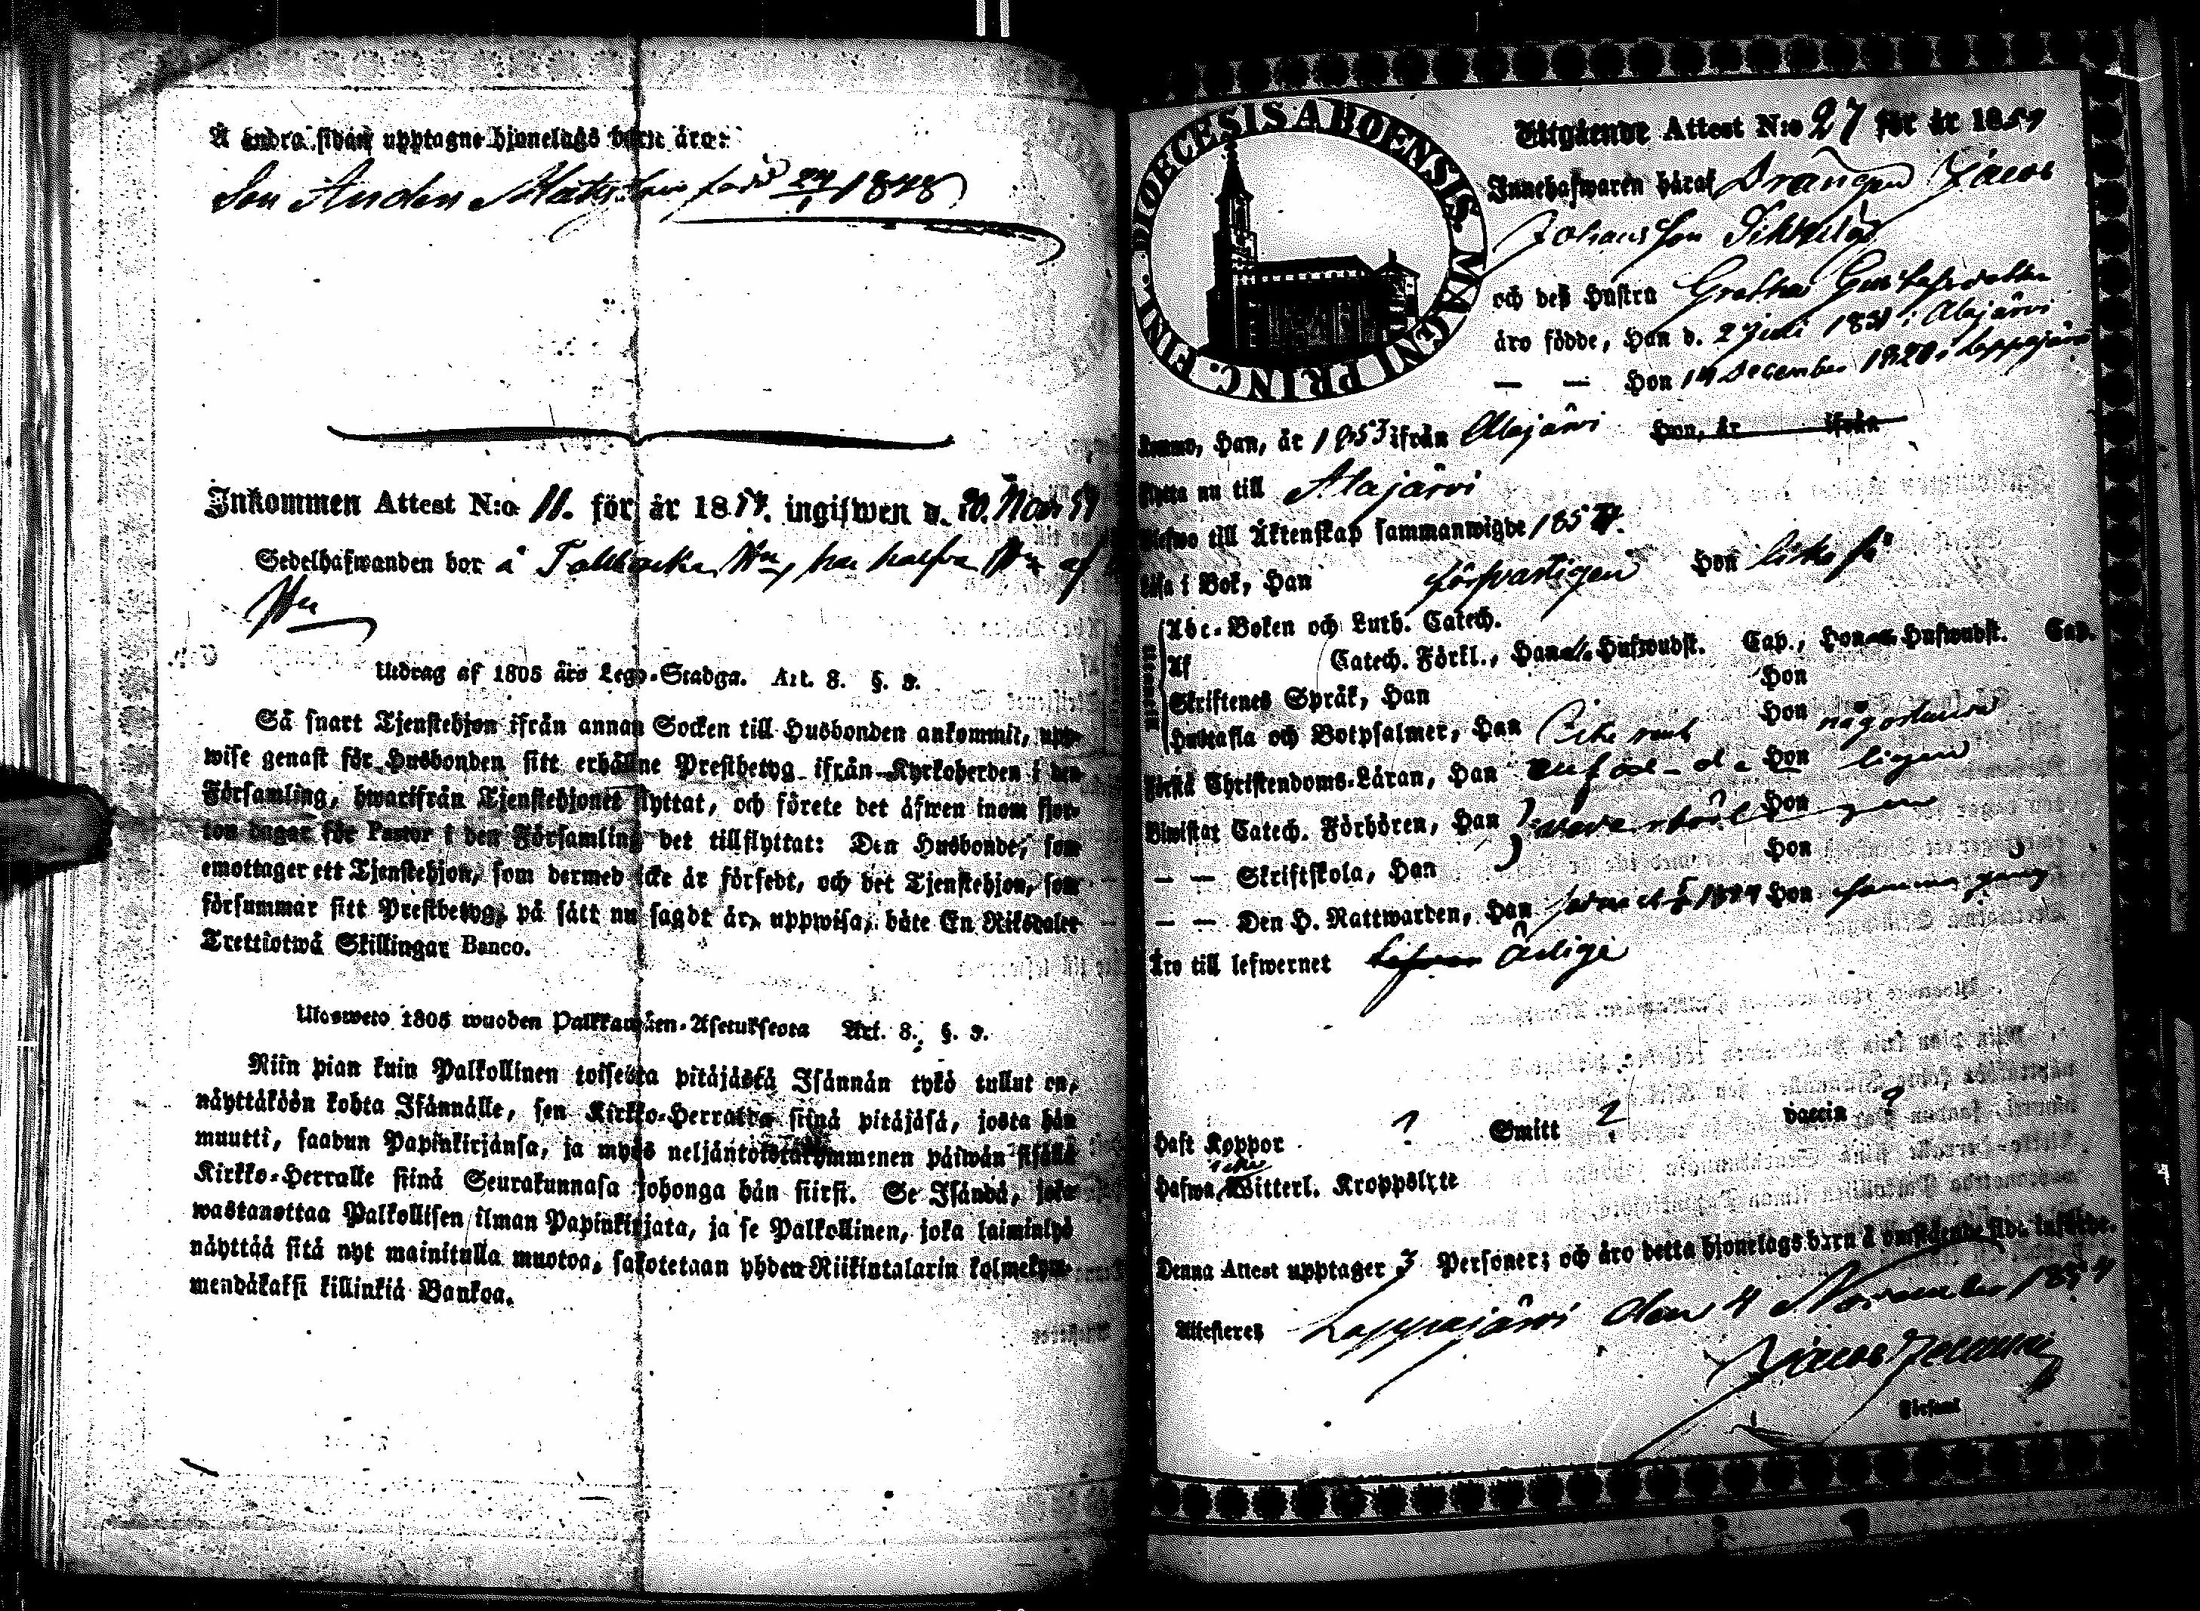 Å andra sidan upptagne hjonelags barn äro:
Son Anders Matsson född 24/1 1848
Inkommen Attest N:o 11. för år 1854. ingifwen d. 20. Nov. 54
Sedelhafwanden bor å Tallbacka
Utdrag af 1805 års Lego-Stadga. Art. 8. §. 3.
Så snart Tjenstehjon ifrån annan Socken till Husbonden ankommit, upp-
wise genast för Husbonden sitt erhållne Prestbetyg ifrån Kyrkoherden i den
Församling, hwarifrån Tjenstehjonet flyttat, och förete det äfwen inom fjor-
ton dagar för Pastor i den Församling det tillflyttat: Den Husbonde, som
emottager ett Tjenstehjon, som dermed icke är försedt, och det Tjenstehjon, som
försummar sitt Prestbetyg, på sätt nu sagdt är, uppwisa, böte En Riksdaler
Trettiotwå Skillingar Banco.
Ulosweto 1805 wuoden Palkkawäen-Asetuksesta Art. 8. §. 3.
Niin pian kuin Palkollinen toisesta pitäjästä Isännän tykö tullut on,
näyttäköön kohta Isännälle, sen Kirkko-Herralta siinä pitäjäsä, josta hän
muutti, saadun Papinkirjansa, ja myös neljäntoistakymmenen päiwän sisällä
Kirkko-Herralle siinä Seurakunnasa johonga hän siirsi. Se Isändä, joka
wastanottaa Palkollisen ilman Papinkirjata, ja se Palkollinen, joka laiminlyö
näyttää sitä nyt mainitulla muotoa, sakotetaan yhden Riikintalarin kolmekym-
mendäkaksi killinkiä Bankoa.
DIOECESIS ABOENSIS. MAGNI PRINC. FINL.
Utgående Attest N:o 27 för år 1854
Innehafwaren häraf Drängen Jacob
Johansson
och deß Hustru Gretha Gustafsdotter
äro födde, Han d. 2 Juli 1831 i Alajärvi
— — Hon 14 December 1820 i Lappajärvi
komno, Han, år 1853 ifrån Alajärvi Hon, år ifrån
flytta nu till Alajärvi
Blefwo till Äktenskap sammanwigde 1854.
Läsa i Bok, Han försvarligen Hon lika så
Abc-Boken och Luth. Catech.
Af Catech. Förkl., Han Hufwudst. Cap., Hon Hufwudst. Cap.
Skriftenes Språk, Han Hon
Hustafla och Botpsalmer, Han Hon
Förstå Christendoms-Läran, Han Hon
Biwistat Catech. Förhören, Han Hon
— — Skriftskola, Han Hon
— — Den H. Nattwarden, Han Hon samma gång
Äro till lefwernet Ärlige
Haft Koppor ? Smitt ? vaccin ?
Hafwa icke Witterl. Kroppslyte
Denna Attest upptager 3 Personer; och äro detta hjonelags barn å omstående sida införde.
Attesteres Lappajärvi den 4 November 1854